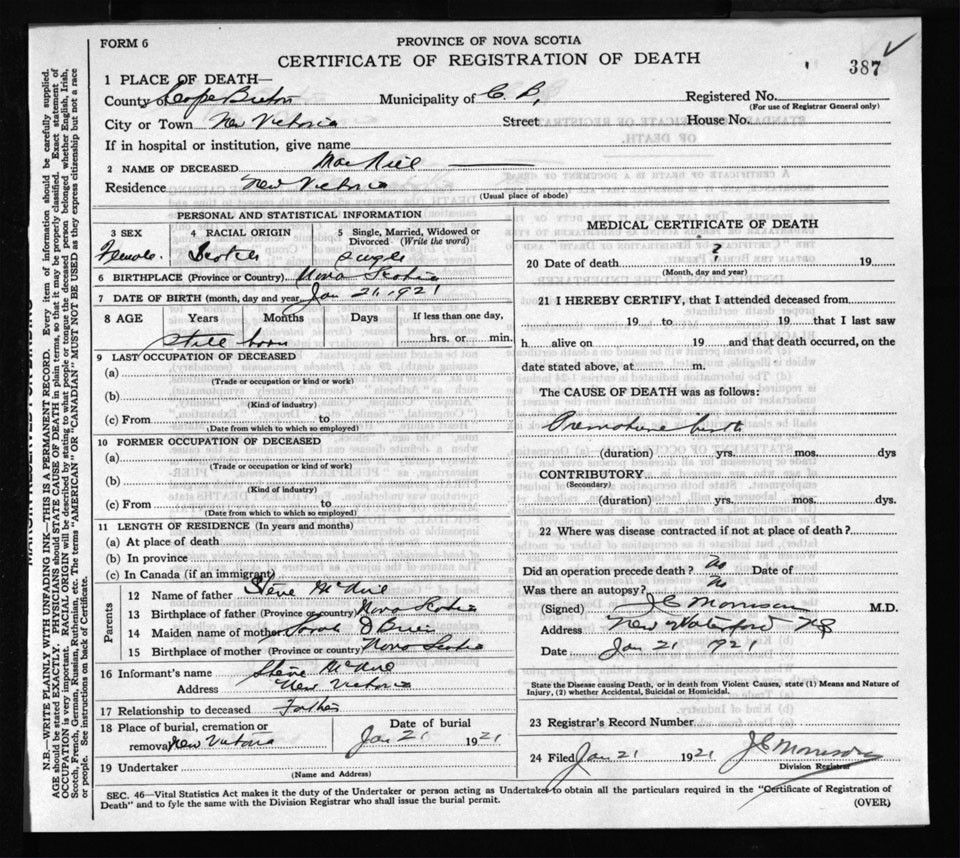 FORM 6
PROVINCE OF NOVA SCOTIA
CERTIFICATE OF REGISTRATION OF DEATH
387
1 PLACE OF DEATH—
County of Cape Breton Municipality of C. B. Registered No.
(For use of Registrar General only)
City or Town New Victoria Street House No.
If in hospital or institution, give name
2 NAME OF DECEASED MacNeil
Residence New Victoria
(Usual place of abode)
PERSONAL AND STATISTICAL INFORMATION
3 SEX 4 RACIAL ORIGIN 5 Single, Married, Widowed or Divorced (Write the word)
Female. Scotch Single
6 BIRTHPLACE (Province or Country) Nova Scotia
7 DATE OF BIRTH (month, day and year) Jan 21, 1921
8 AGE Years Months Days If less than one day,
Still born hrs. or min.
9 LAST OCCUPATION OF DECEASED
(a)
(Trade or occupation or kind or work)
(b)
(Kind of industry)
(c) From to
(Date from which to which so employed)
10 FORMER OCCUPATION OF DECEASED
(a)
(Trade or occupation or kind of work)
(b)
(Kind of industry)
(c) From to
(Date from which to which so employed)
11 LENGTH OF RESIDENCE (In years and months)
(a) At place of death
(b) In province
(c) In Canada (if an immigrant)
Parents
12 Name of father Steve McNeil
13 Birthplace of father (Province or country) Nova Scotia
14 Maiden name of mother Sarah O'Brien
15 Birthplace of mother (Province or country) Nova Scotia
16 Informant's name Steve McNeil
Address New Victoria
17 Relationship to deceased Father
18 Place of burial, cremation or Date of burial
removal New Victoria Jan 21 1921
19 Undertaker
(Name and Address)
MEDICAL CERTIFICATE OF DEATH
20 Date of death ? 19
(Month, day and year)
21 I HEREBY CERTIFY, that I attended deceased from
19 to 19 that I last saw
h alive on 19 and that death occurred, on the
date stated above, at m.
The CAUSE OF DEATH was as follows:
Premature birth
(duration) yrs. mos. dys
CONTRIBUTORY
(Secondary)
(duration) yrs. mos. dys.
22 Where was disease contracted if not at place of death?
Did an operation precede death? no Date of
Was there an autopsy? no
(Signed) J C Morrison M.D.
Address New Waterford NS
Date Jan 21 1921
State the Disease causing Death, or in death from Violent Causes, state (1) Means and Nature of
Injury, (2) whether Accidental, Suicidal or Homicidal.
23 Registrar's Record Number
24 Filed Jan 21 1921 J C Morrison
Division Registrar
SEC. 46—Vital Statistics Act makes it the duty of the Undertaker or person acting as Undertaker to obtain all the particulars required in the "Certificate of Registration of
Death" and to fyle the same with the Division Registrar who shall issue the burial permit.
(OVER)
N.B.—WRITE PLAINLY WITH UNFADING INK—THIS IS A PERMANENT RECORD. Every item of information should be carefully supplied.
AGE should be stated EXACTLY. PHYSICIANS should STATE CAUSE OF DEATH in plain terms, so that it may be properly classified. Exact statement of
OCCUPATION is very important. RACIAL ORIGIN will be described by stating to what people or tongue the deceased person belonged whether English, Irish,
Scotch, French, German, Russian, Ruthenian, etc. The terms "AMERICAN" OR "CANADIAN" MUST NOT BE USED as they express citizenship but not a race
or people. See instructions on back of Certificate.